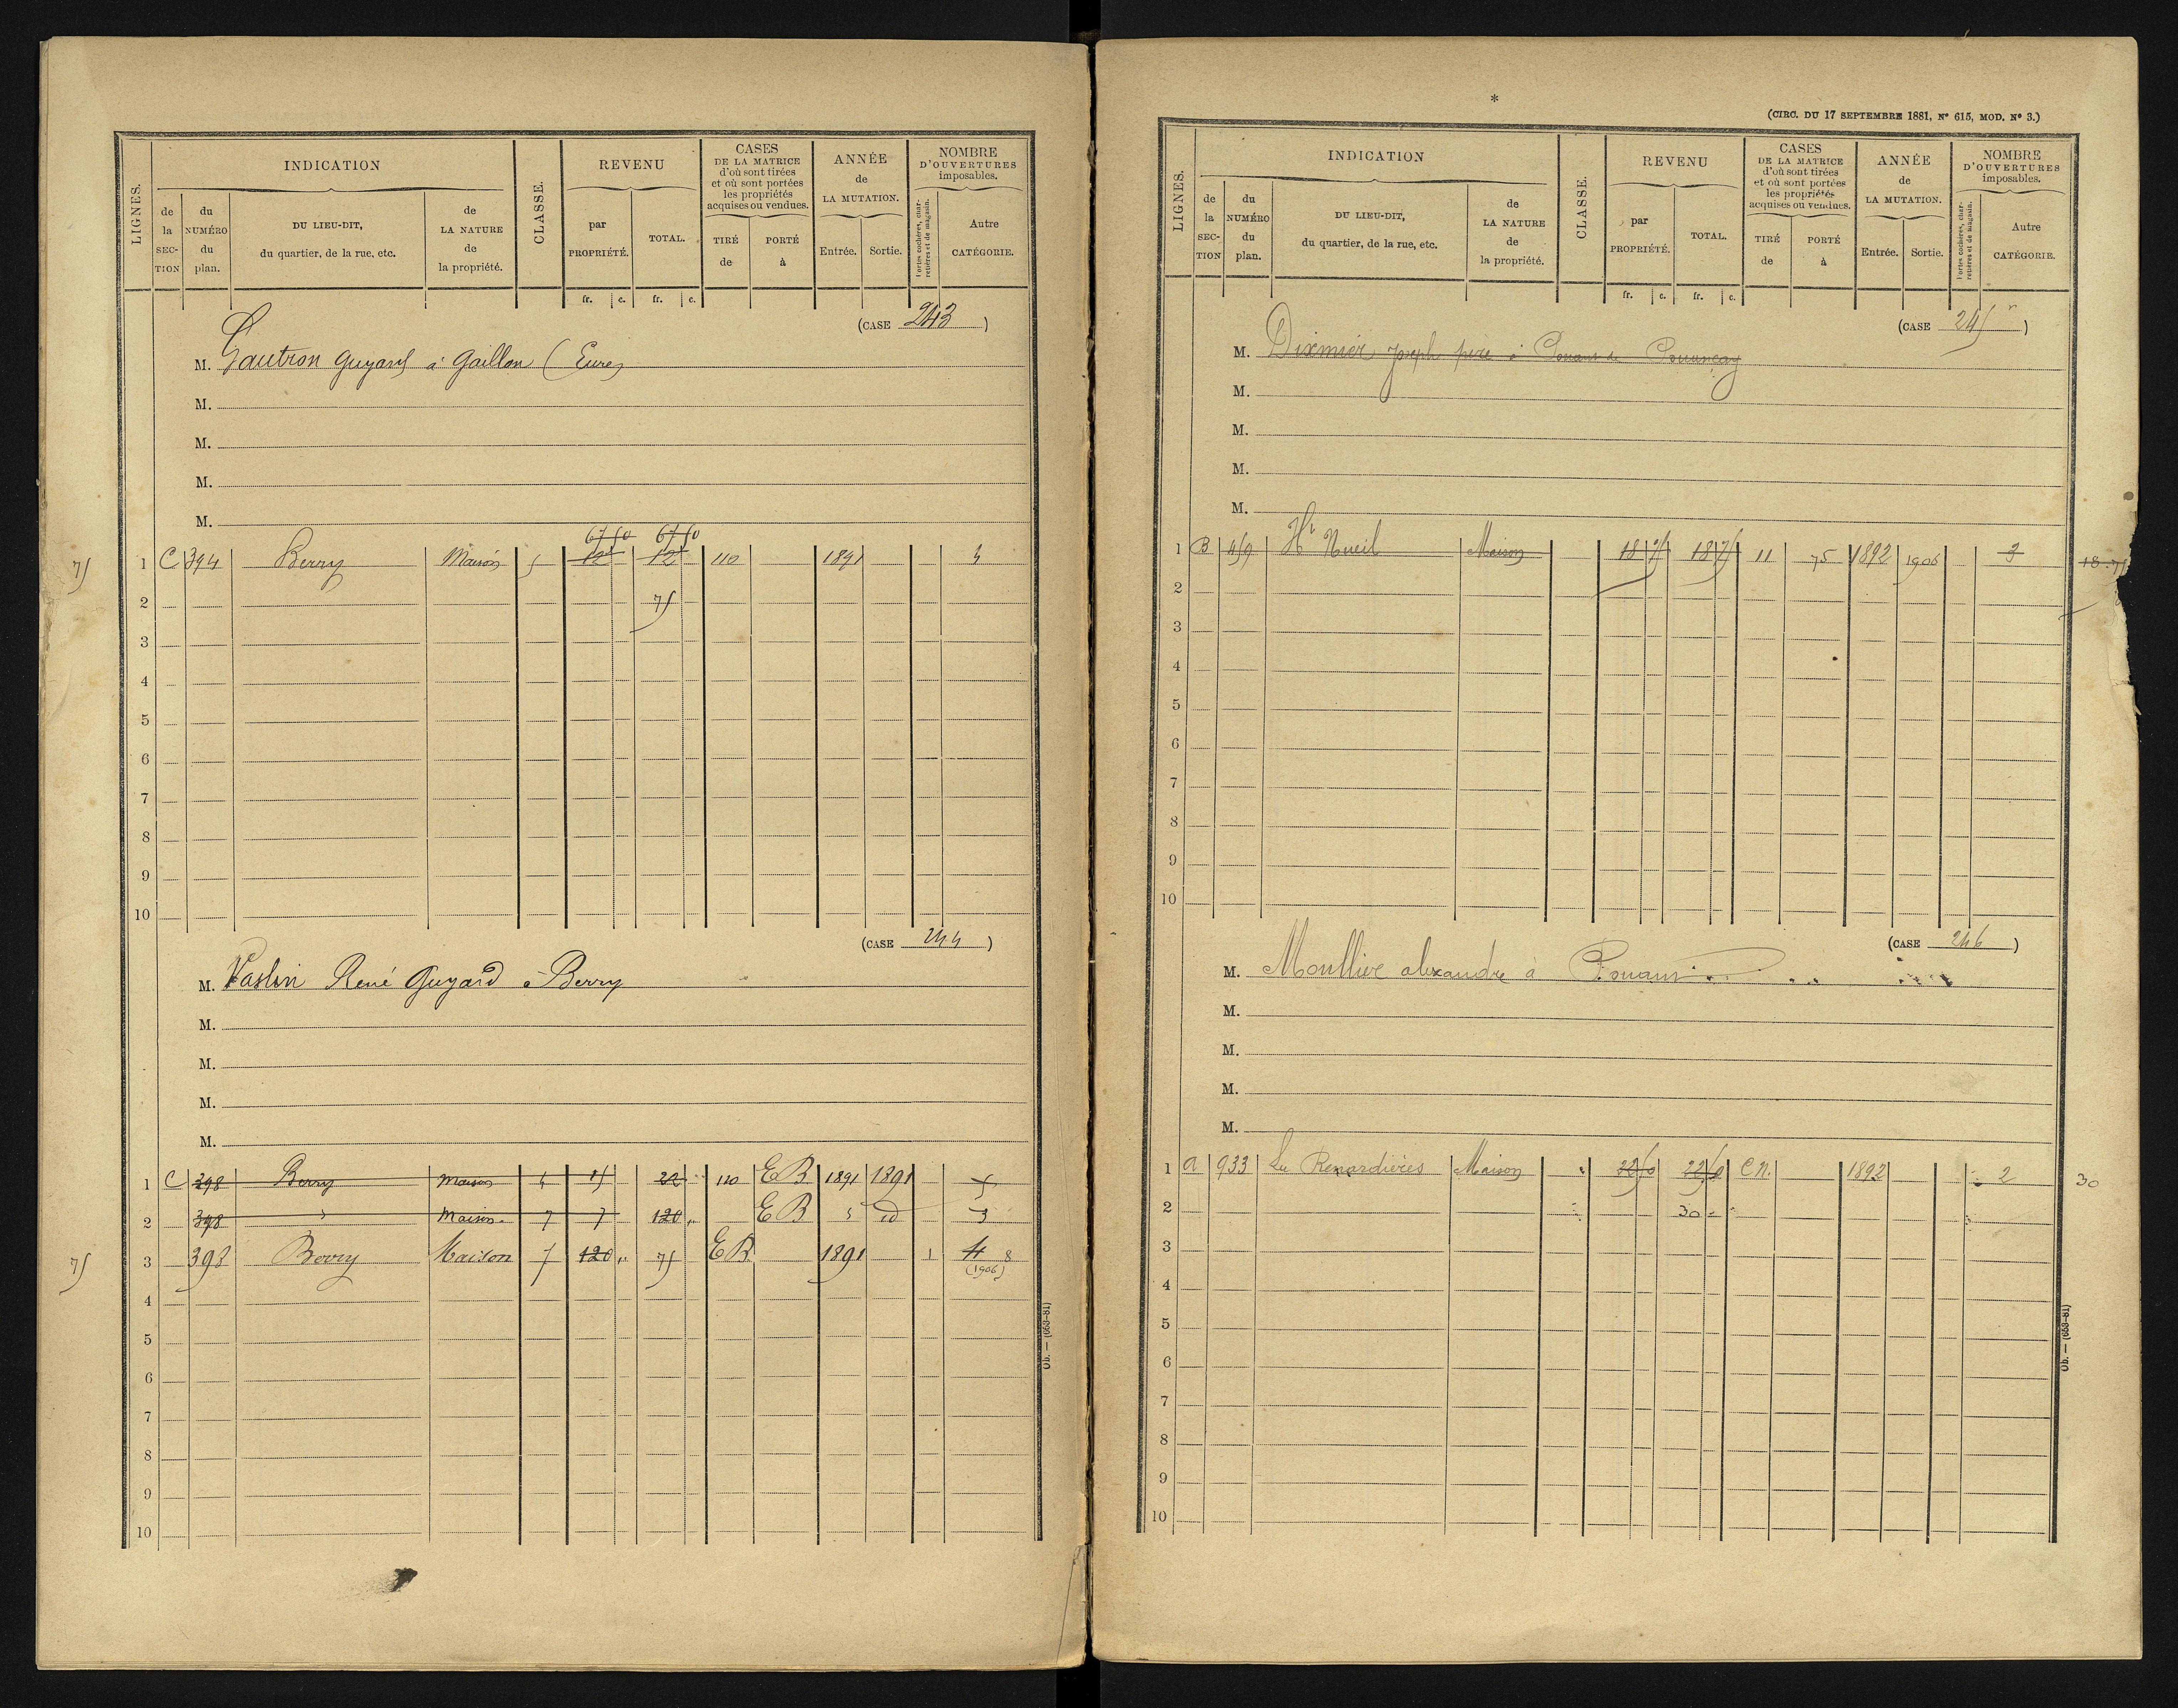 LIGNES.
INDICATION
de la SECTION
du NUMÉRO du plan.
DU LIEU-DIT, du quartier, de la rue, etc.
de LA NATURE de la propriété.
CLASSE.
REVENU
par PROPRIÉTÉ.
TOTAL.
CASES DE LA MATRICE d'où sont tirées et où sont portées les propriétés acquises ou vendues.
TIRÉ de
PORTÉ à
ANNÉE de LA MUTATION.
Entrée.
Sortie.
NOMBRE D'OUVERTURES imposables.
Portes cochères, charretières et de magasin.
Autre CATÉGORIE.
fr. c. fr. c.
(CASE 243)
M. Gautron Guyard à Gaillon (Eure)
M.
M.
M.
M.
67 50 67 50
75 1 C 394 Berry Maison 5 12 12 110 1891 4
2 75
3
4
5
6
7
8
9
10
(CASE 244)
M. Vaslin René Guyard à Berry
M.
M.
M.
M.
1 C 398 Berry Maison 15 22 110 EB 1891 1891 5
2 398 " Maison 7 7 120 " EB " id 3
75 3 398 Berry Maison 7 120 " 75 EB 1891 1 4 8
(1906)
4
5
6
7
8
9
10
Ob. — (653-81)
*
(CIRC. DU 17 SEPTEMBRE 1881, N° 615, MOD. N° 3.)
LIGNES.
INDICATION
de la SECTION
du NUMÉRO du plan.
DU LIEU-DIT, du quartier, de la rue, etc.
de LA NATURE de la propriété.
CLASSE.
REVENU
par PROPRIÉTÉ.
TOTAL.
CASES DE LA MATRICE d'où sont tirées et où sont portées les propriétés acquises ou vendues.
TIRÉ de
PORTÉ à
ANNÉE de LA MUTATION.
Entrée.
Sortie.
NOMBRE D'OUVERTURES imposables.
Portes cochères, charretières et de magasin.
Autre CATÉGORIE.
fr. c. fr. c.
(CASE 245)
M. Dixmier Joseph père à Pouant de Pouançay
M.
M.
M.
M.
1 B 459 Ht Nueil Maison 18 75 18 75 11 75 1892 1906 3 18.75
2
3
4
5
6
7
8
9
10
(CASE 246)
M. Moullive alexandre à Pouant
M.
M.
M.
M.
1 a 933 Les Renardières Maison " 22 50 22 50 C.N. 1892 2 30
2 30
3
4
5
6
7
8
9
10
Ob. — (653-81)